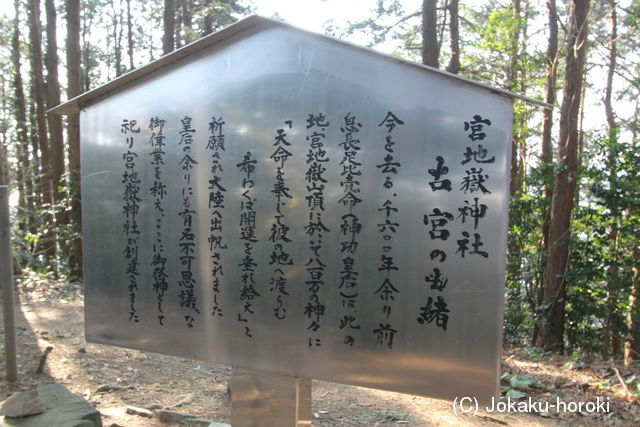 宮地嶽神社
古宮の由緒
今を去る、千六〇〇年余り前
息長足比売命(神功皇后)は此の
地、宮地嶽山頂に於いて八百万の神々に
『天命を奉じて彼の地へ渡らむ
希わくば開運を垂れ給え』と
祈願され大陸へ出帆されました
皇后の余りにも有名不可思議な
御偉業を称え、ここに御祭神として
祀り宮地嶽神社が創建されました
(C) Jokaku-horoki